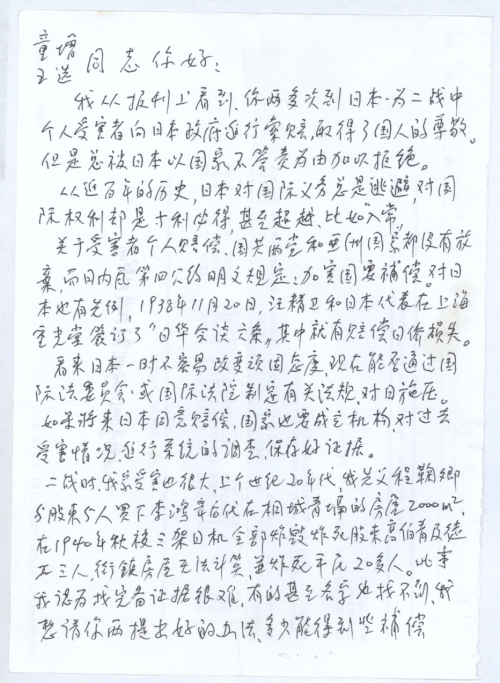 童增
王选 同志你好:
我从报刊上看到、你两多次到日本一为二战中
个人受害者向日本政府进行索赔,取得了国人的尊敬。
但是总被日本以国家不答责为由加以拒绝。
从近百年的历史,日本对国际义务总是逃避,对国
际权利却是寸利必得,甚至超越、比如"入常"。
关于受害者个人赔偿、国共两党和亚洲国家都没有放
弃,而日内瓦第四公约明文规定:加害国要补偿。对日
本也有先例,1938年11月20日,汪精卫和日本代表在上海
重光堂签订了"日华会谈六条",其中就有赔偿日侨损失。
看来日本一时不容易改变顽固态度,现在能否通过国
际法委员会·或国际法院制定有关法规、对日施压。
如果将来日本同意赔偿,国家也要成立机构,对过去
受害情况,进行系统的调查、保存好证据。
二战时,我家受害也很大,上个世纪20年代,我先父程鞠卿
与股东5人買下李鸿章后代在桐城青埔的房屋2000m²,
在1940年秋被三架日机全部炸毁炸死股东高伯着及徒
工三人,街鎮房屋无法计算,並炸死平民20多人。此事
我認为找完着证据很难,有的甚至名字也找不到,我
想请你两提出好的办法,多少能得到些補偿